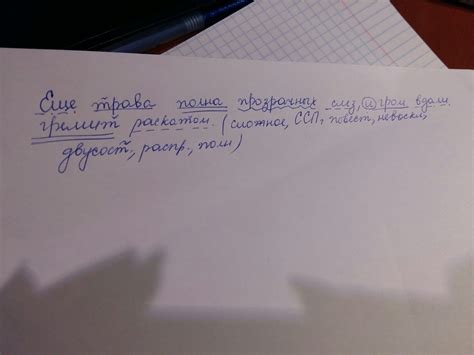 Еще трава полна прозрачных слез, и гром вдали
гремит раскатом. (сложное, ССП, повест, невоскл,
двусост, распр., полн)